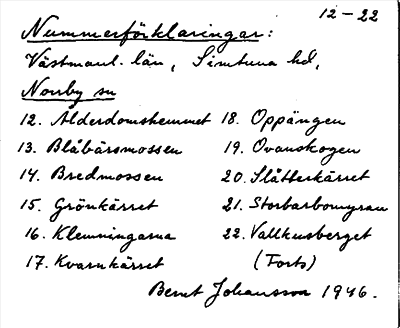 12-22
Nummerförklaringar:
Västmanl. län, Simtuna hd,
Nouby sn
12. Ålderdomshemmet 18. Oppängen
13. Blåbärsmossen 19. Ovanskogen
14. Bredmossen 20. Slåtterkärret
15. Grönkärret 21. Storbarbomyran
16. Klemningarna 22. Vallkusberget
17. Kvarnkärret (Forts)
Bernt Johansson 1946.